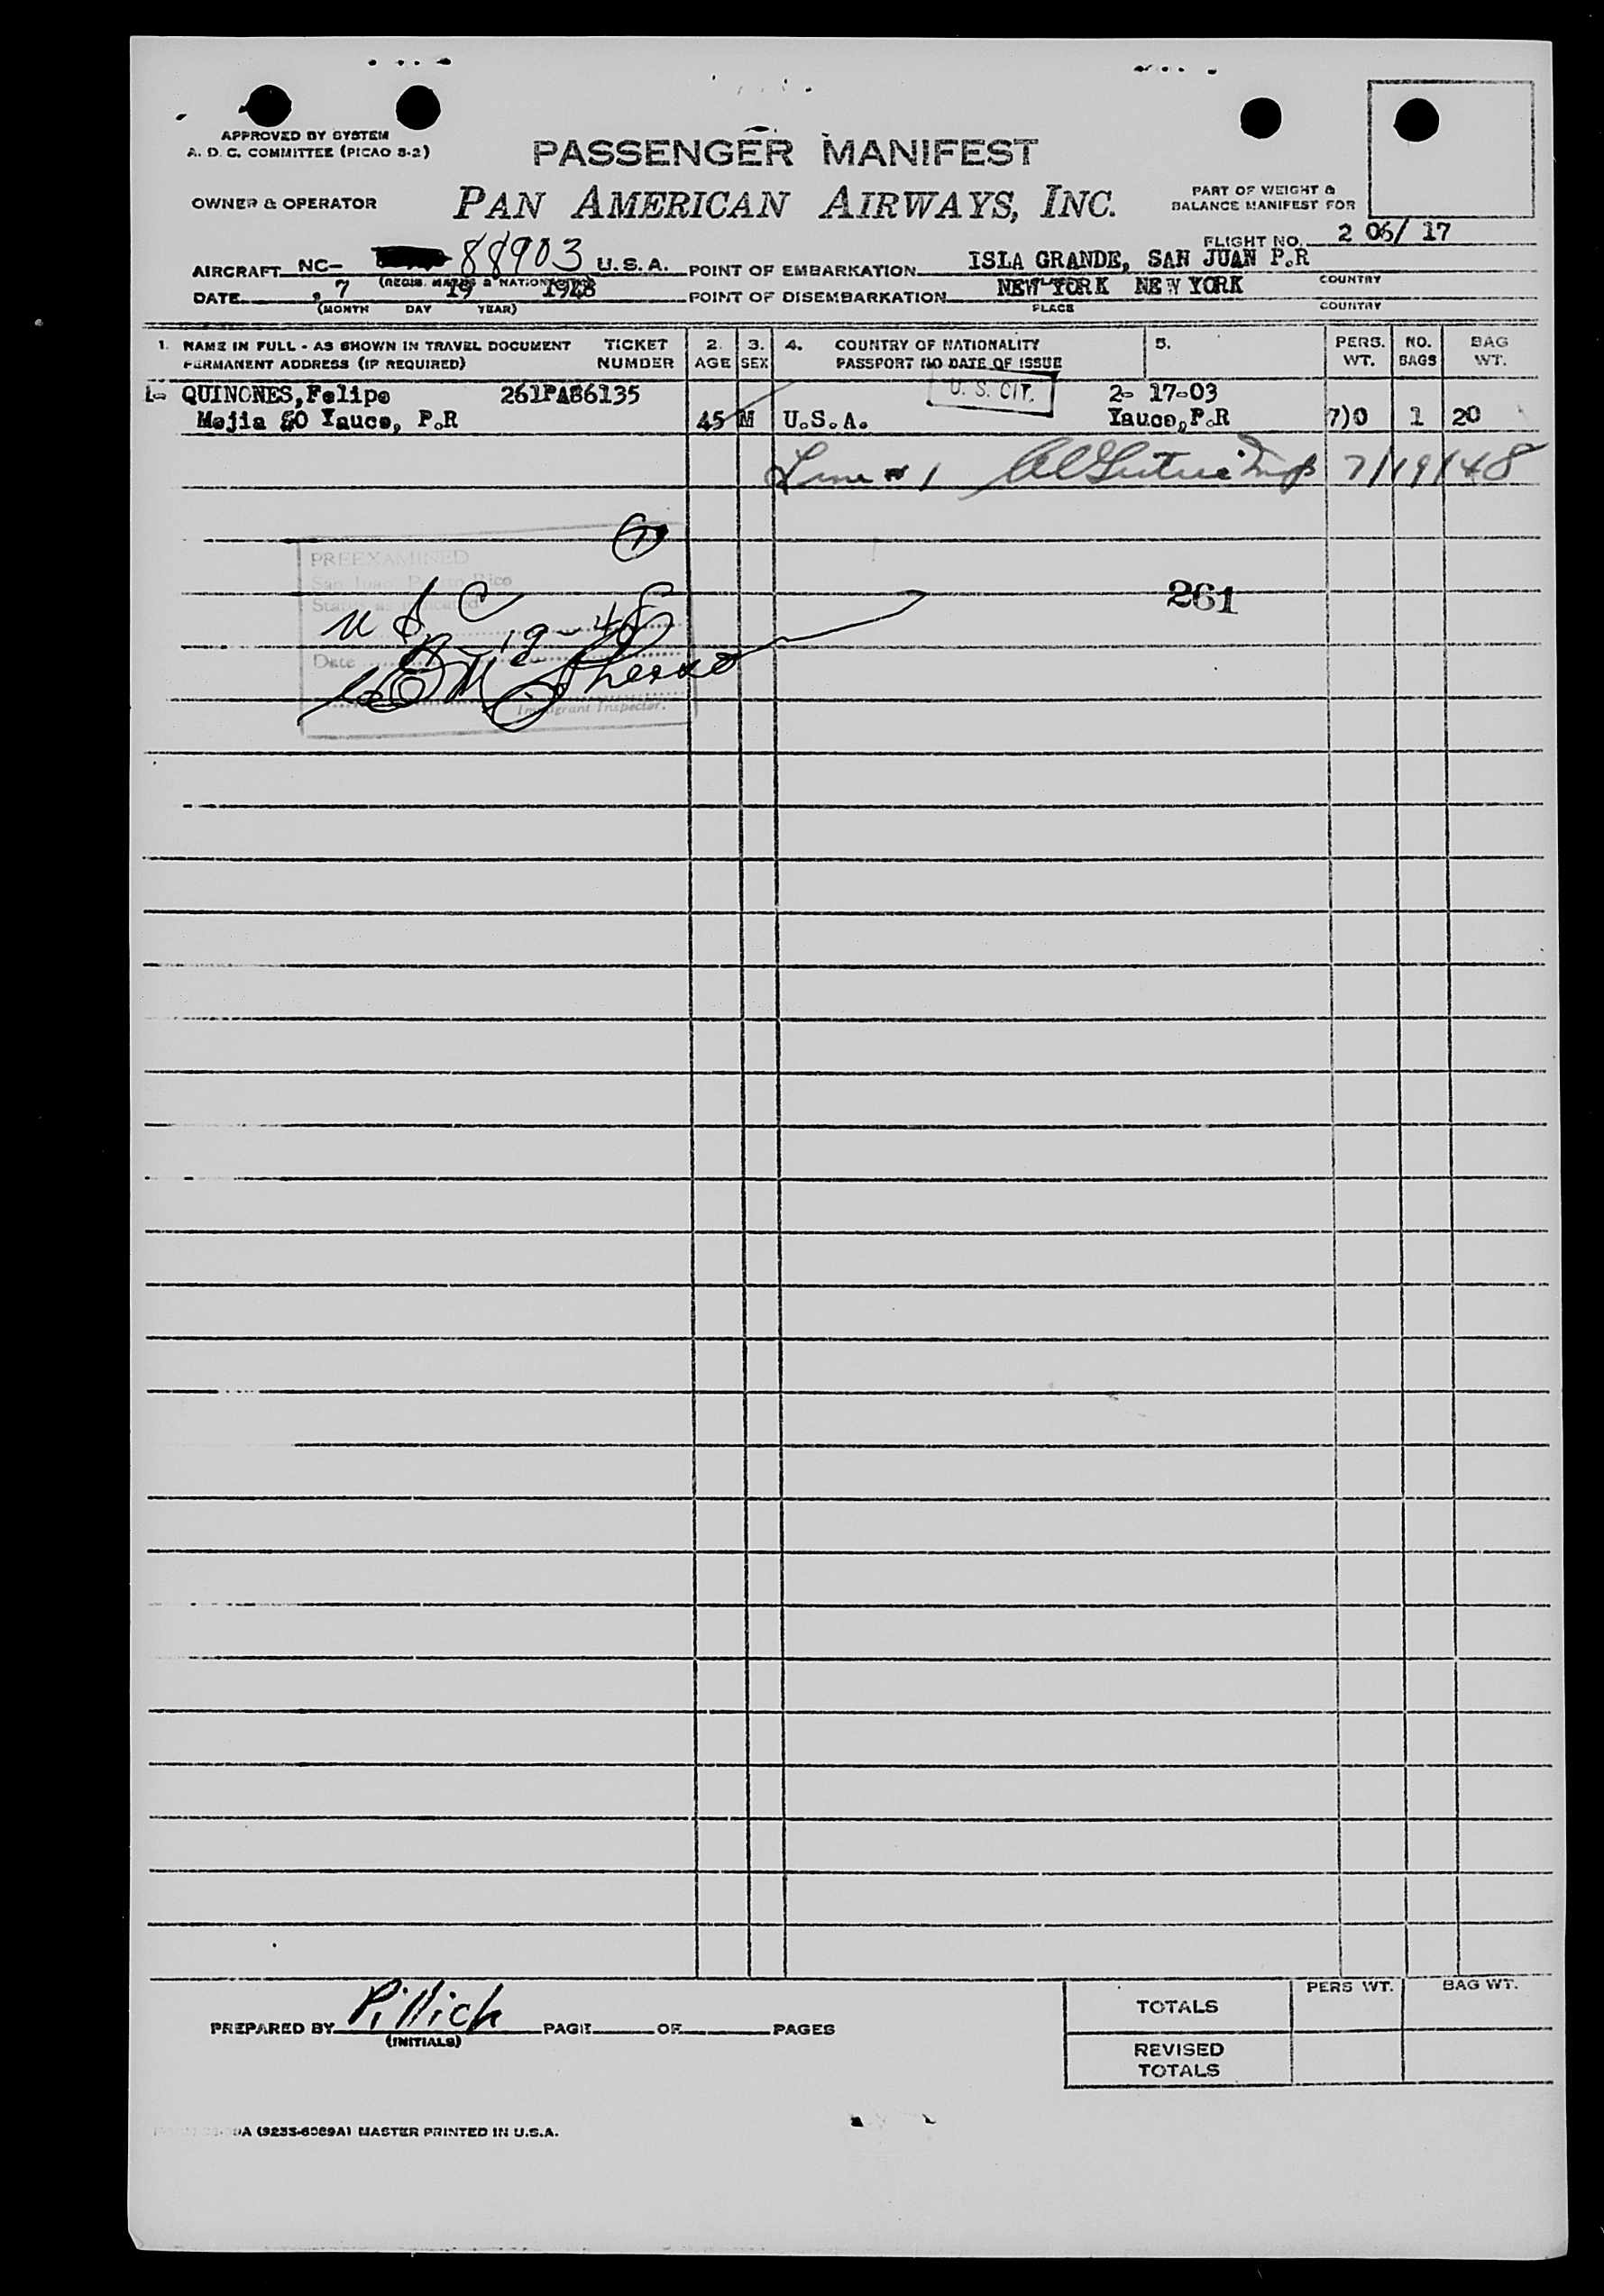 APPROVED BY SYSTEM
A. D. C. COMMITTEE (PICAO S-2)
PASSENGER MANIFEST
OWNER & OPERATOR
PAN AMERICAN AIRWAYS, INC.
PART OF WEIGHT &
BALANCE MANIFEST FOR
FLIGHT NO. 2 06/ 17
AIRCRAFT NC- 88903 U.S.A. POINT OF EMBARKATION ISLA GRANDE, SAN JUAN P.R
(REGIS. MARKS & NATIONALITY) COUNTRY
DATE 7 19 1948 POINT OF DISEMBARKATION NEW YORK NEW YORK
(MONTH DAY YEAR) PLACE COUNTRY
1. NAME IN FULL - AS SHOWN IN TRAVEL DOCUMENT TICKET 2. 3. 4. COUNTRY OF NATIONALITY 5. PERS. NO. BAG
PERMANENT ADDRESS (IF REQUIRED) NUMBER AGE SEX PASSPORT NO DATE OF ISSUE WT. BAGS WT.
1- QUINONES, Felipe 261PA86135 U. S. CIT. 2- 17-03
Mejia 50 Yauco, P.R 45 M U.S.A. Yauco, P.R 7)0 1 20
Line # 1 7/19/48
PREEXAMINED
San Juan, Puerto Rico
261
Status as indicated
U S C
Date 19-48
Immigrant Inspector.
PREPARED BY Pillich PAGE OF PAGES
(INITIALS)
PERS WT. BAG WT.
TOTALS
REVISED
TOTALS
MASTER PRINTED IN U.S.A.